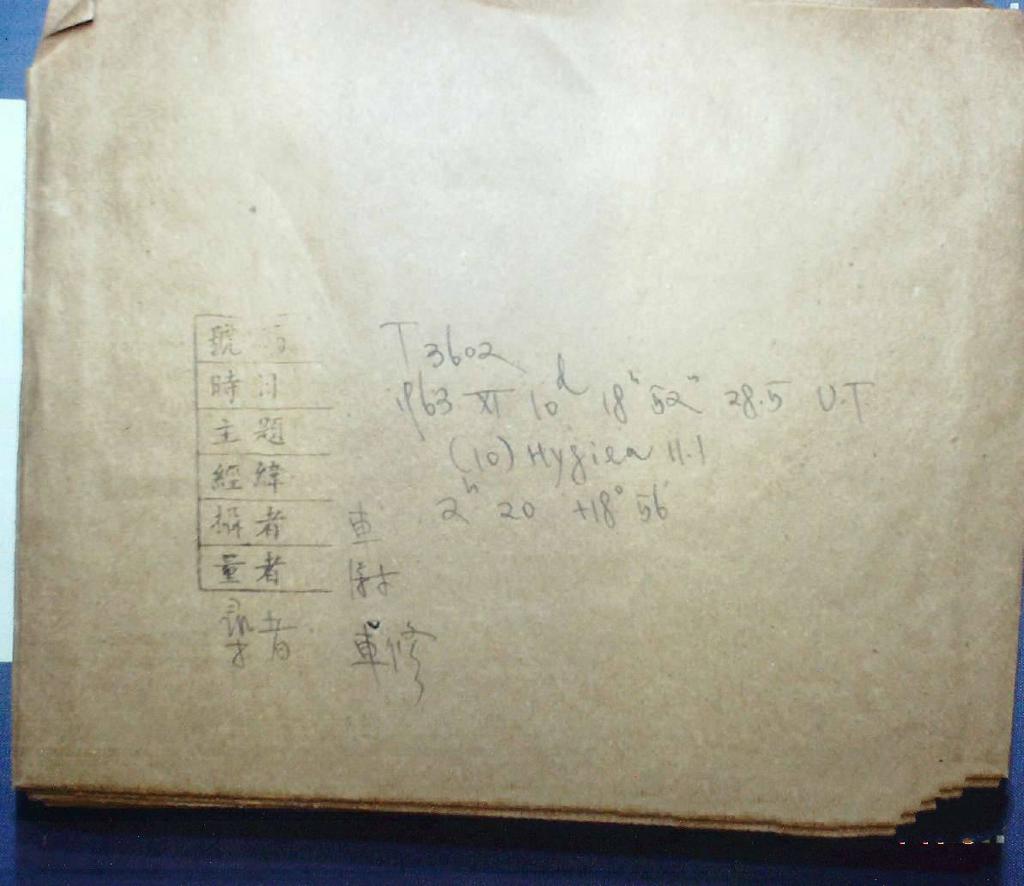 號 T 3602
時日 1963 XI 10d 18h 52m 28.5 U.T
主題 (10) Hygiea 11.1
經緯 2h 20 +18° 56
攝者 車
量者
尋者 車 修